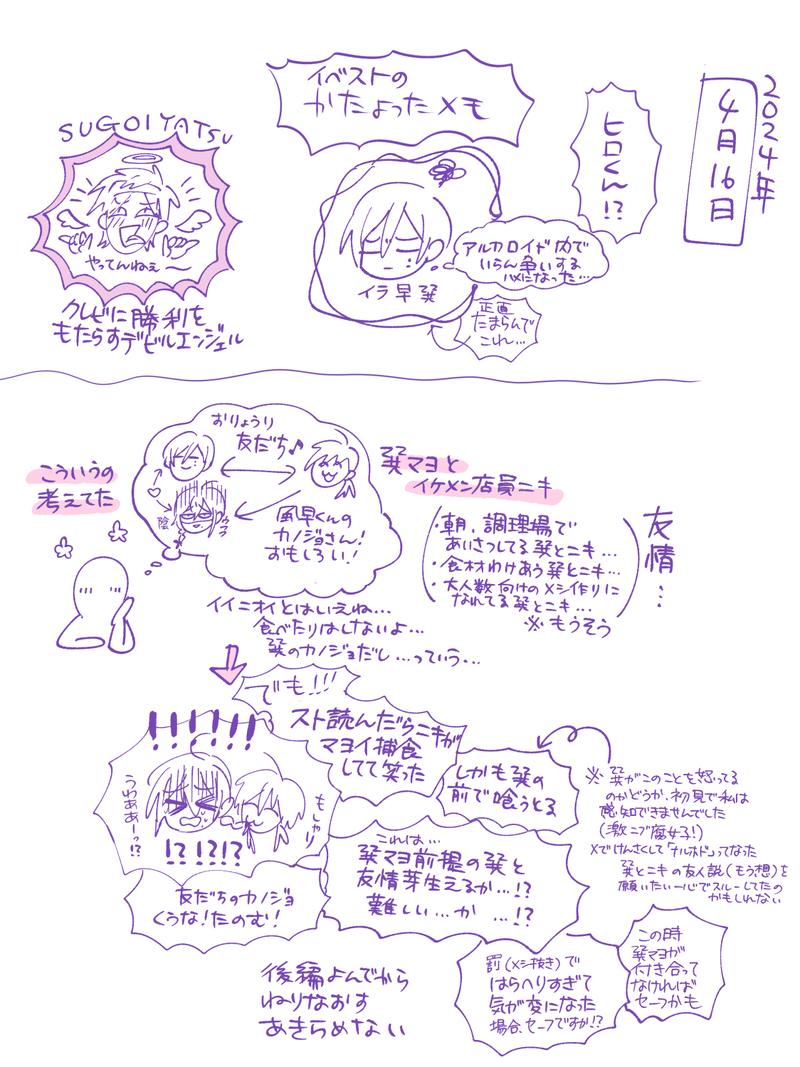 2024年
4月16日
ヒロくん!?
イベストの
かたよったメモ
アルカロイド内で
いらん争いする
ハメになった…
イラ早巽
正直
たまらんで
これ…
SUGOIYATSU
やってんねぇ〜
クレビに勝利を
もたらすデビルエンジェル
こういうの
考えてた
おりょうり
友だち♪
陰
ウフフ
風早くんの
カノジョさん!
おもしろい!
巽マヨと
イケメン店員ニキ
・朝、調理場で
あいさつしてる巽とニキ…
・食材わけあう巽とニキ…
・大人数向けのメシ作りに
なれてる巽とニキ…
※もうそう
友情…
イイニオイとはいえね…
食べたりはしないよ…
巽のカノジョだし…っていう…
でも!!!
スト読んだらニキが
マヨイ捕食
してて笑った
しかも巽の
前で喰うとる
※巽がこのことを怒ってる
のかどうか、初見で私は
感知できませんでした
(激ニブ腐女子!)
Xでけんさくして「ナルホド」ってなった
巽とニキの友人説(もう想)を
願いたい一心でスルーしてたの
かもしれない
!!!!!!
うわああーっ!?
もしゃり
!?!?!?
友だちのカノジョ
くうな!たのむ!
これは…
巽マヨ前提の巽と
友情芽生えるか…!?
難しい…か…!?
罰(メシ抜き)で
はらへりすぎて
気が変になった
場合、セーフですか!?
この時
巽マヨが
付き合って
なければ
セーフかも
後編よんでから
ねりなおす
あきらめない